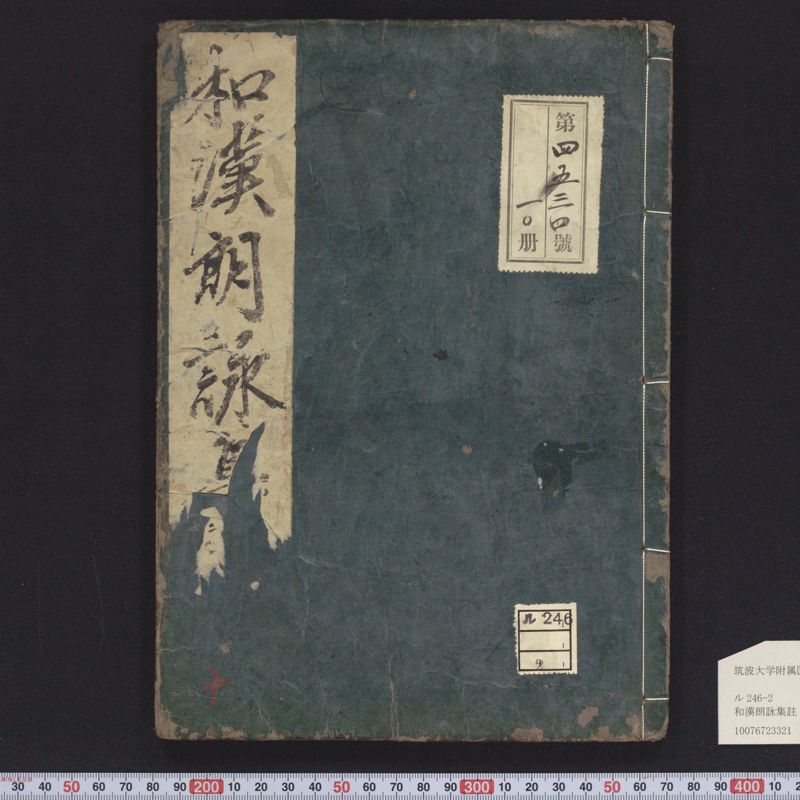 和漢朗詠
第四五三四號
一〇册
ル 246
9
十
筑波大学附属
ル 246-2
和漢朗詠集註
10076723321
STAINLESS
30 40 50 60 70 80 90 200 10 20 30 40 50 60 70 80 90 300 10 20 30 40 50 60 70 80 90 400 10